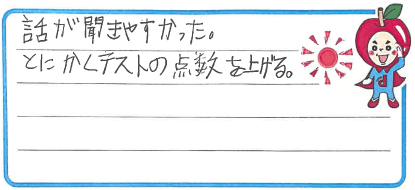 話が聞きやすかった。
とにかくテストの点数を上げる。